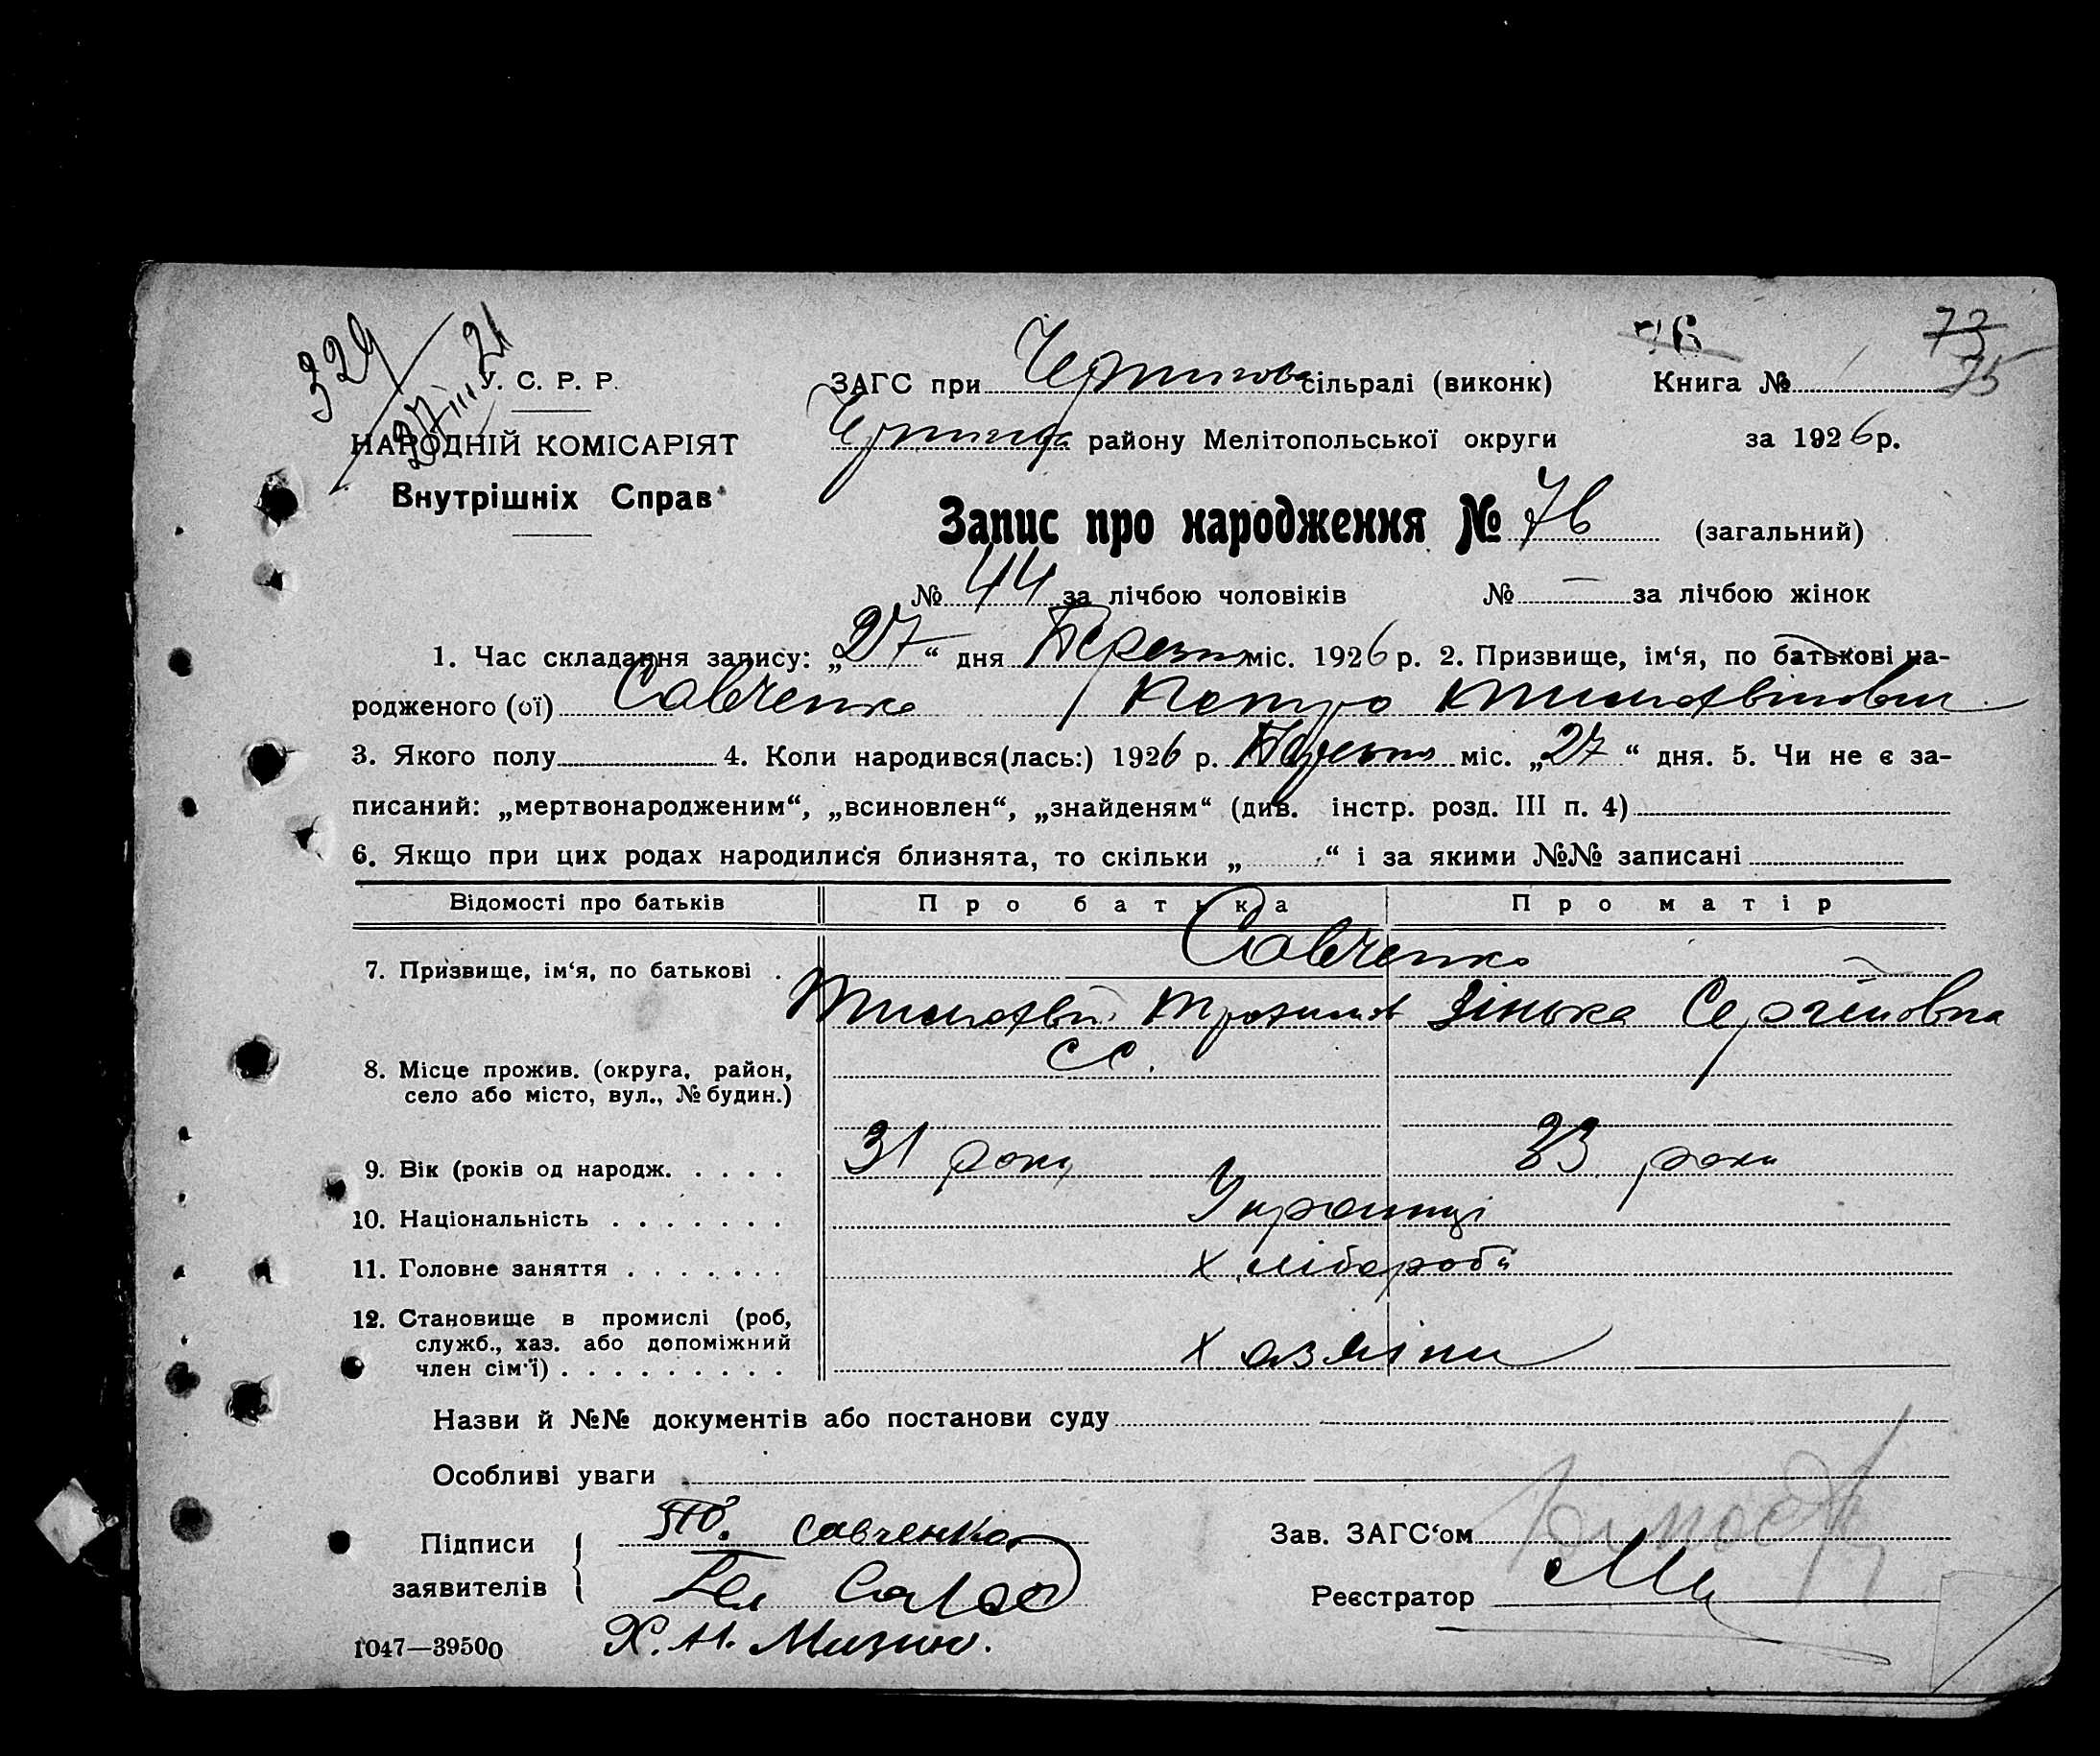 329
27/III 21
76
73
75
У. С. Р. Р.
ЗАГС при сільраді (виконк) Книга №
НАРОДНІЙ КОМІСАРІЯТ
району Мелітопольської округи за 1926 р.
Внутрішніх Справ
Запис про народження № 76 (загальний)
№ 44 за лічбою чоловіків № — за лічбою жінок
1. Час складання запису: „27“ дня Березня міс. 1926 р. 2. Призвище, ім‘я, по батькові на-
родженого (ої) Савченко Петро Тимофвійович
3. Якого полу 4. Коли народився(лась:) 1926 р. Березня міс. „27“ дня. 5. Чи не є за-
писаний: „мертвонародженим“, „всиновлен“, „знайденям“ (див. інстр. розд. III п. 4)
6. Якщо при цих родах народилися близнята, то скільки „ “ і за якими №№ записані
Відомості про батьків Про батька Про матір
Савченко
7. Призвище, ім‘я, по батькові .
Тимофвій Трохимов Зінька Сергійовна
8. Місце прожив. (округа, район,
село або місто, вул., № будин.)
9. Вік (років од народж. . . . . 31 року 33 роки
10. Національність . . . . . . . Українці
11. Головне заняття . . . . . . . Хлібороби
12. Становище в промислі (роб,
служб., хаз. або допоміжний
член сім‘ї) . . . . . . . . . Хазяїни
Назви й №№ документів або постанови суду
Особливі уваги
Підписи
заявителів
Савченко
Зав. ЗАГС‘ом
Реєстратор
1047—39500